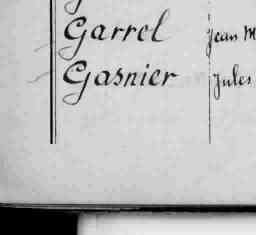 Garrel Jean M
Gasnier Jules